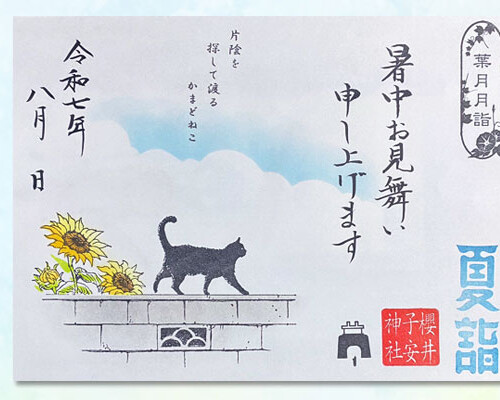 葉月月詣
夏詣
暑中お見舞い
申し上げます
櫻井
子安
神社
片陰を
探して渡る
かまどねこ
令和七年
八月 日
1